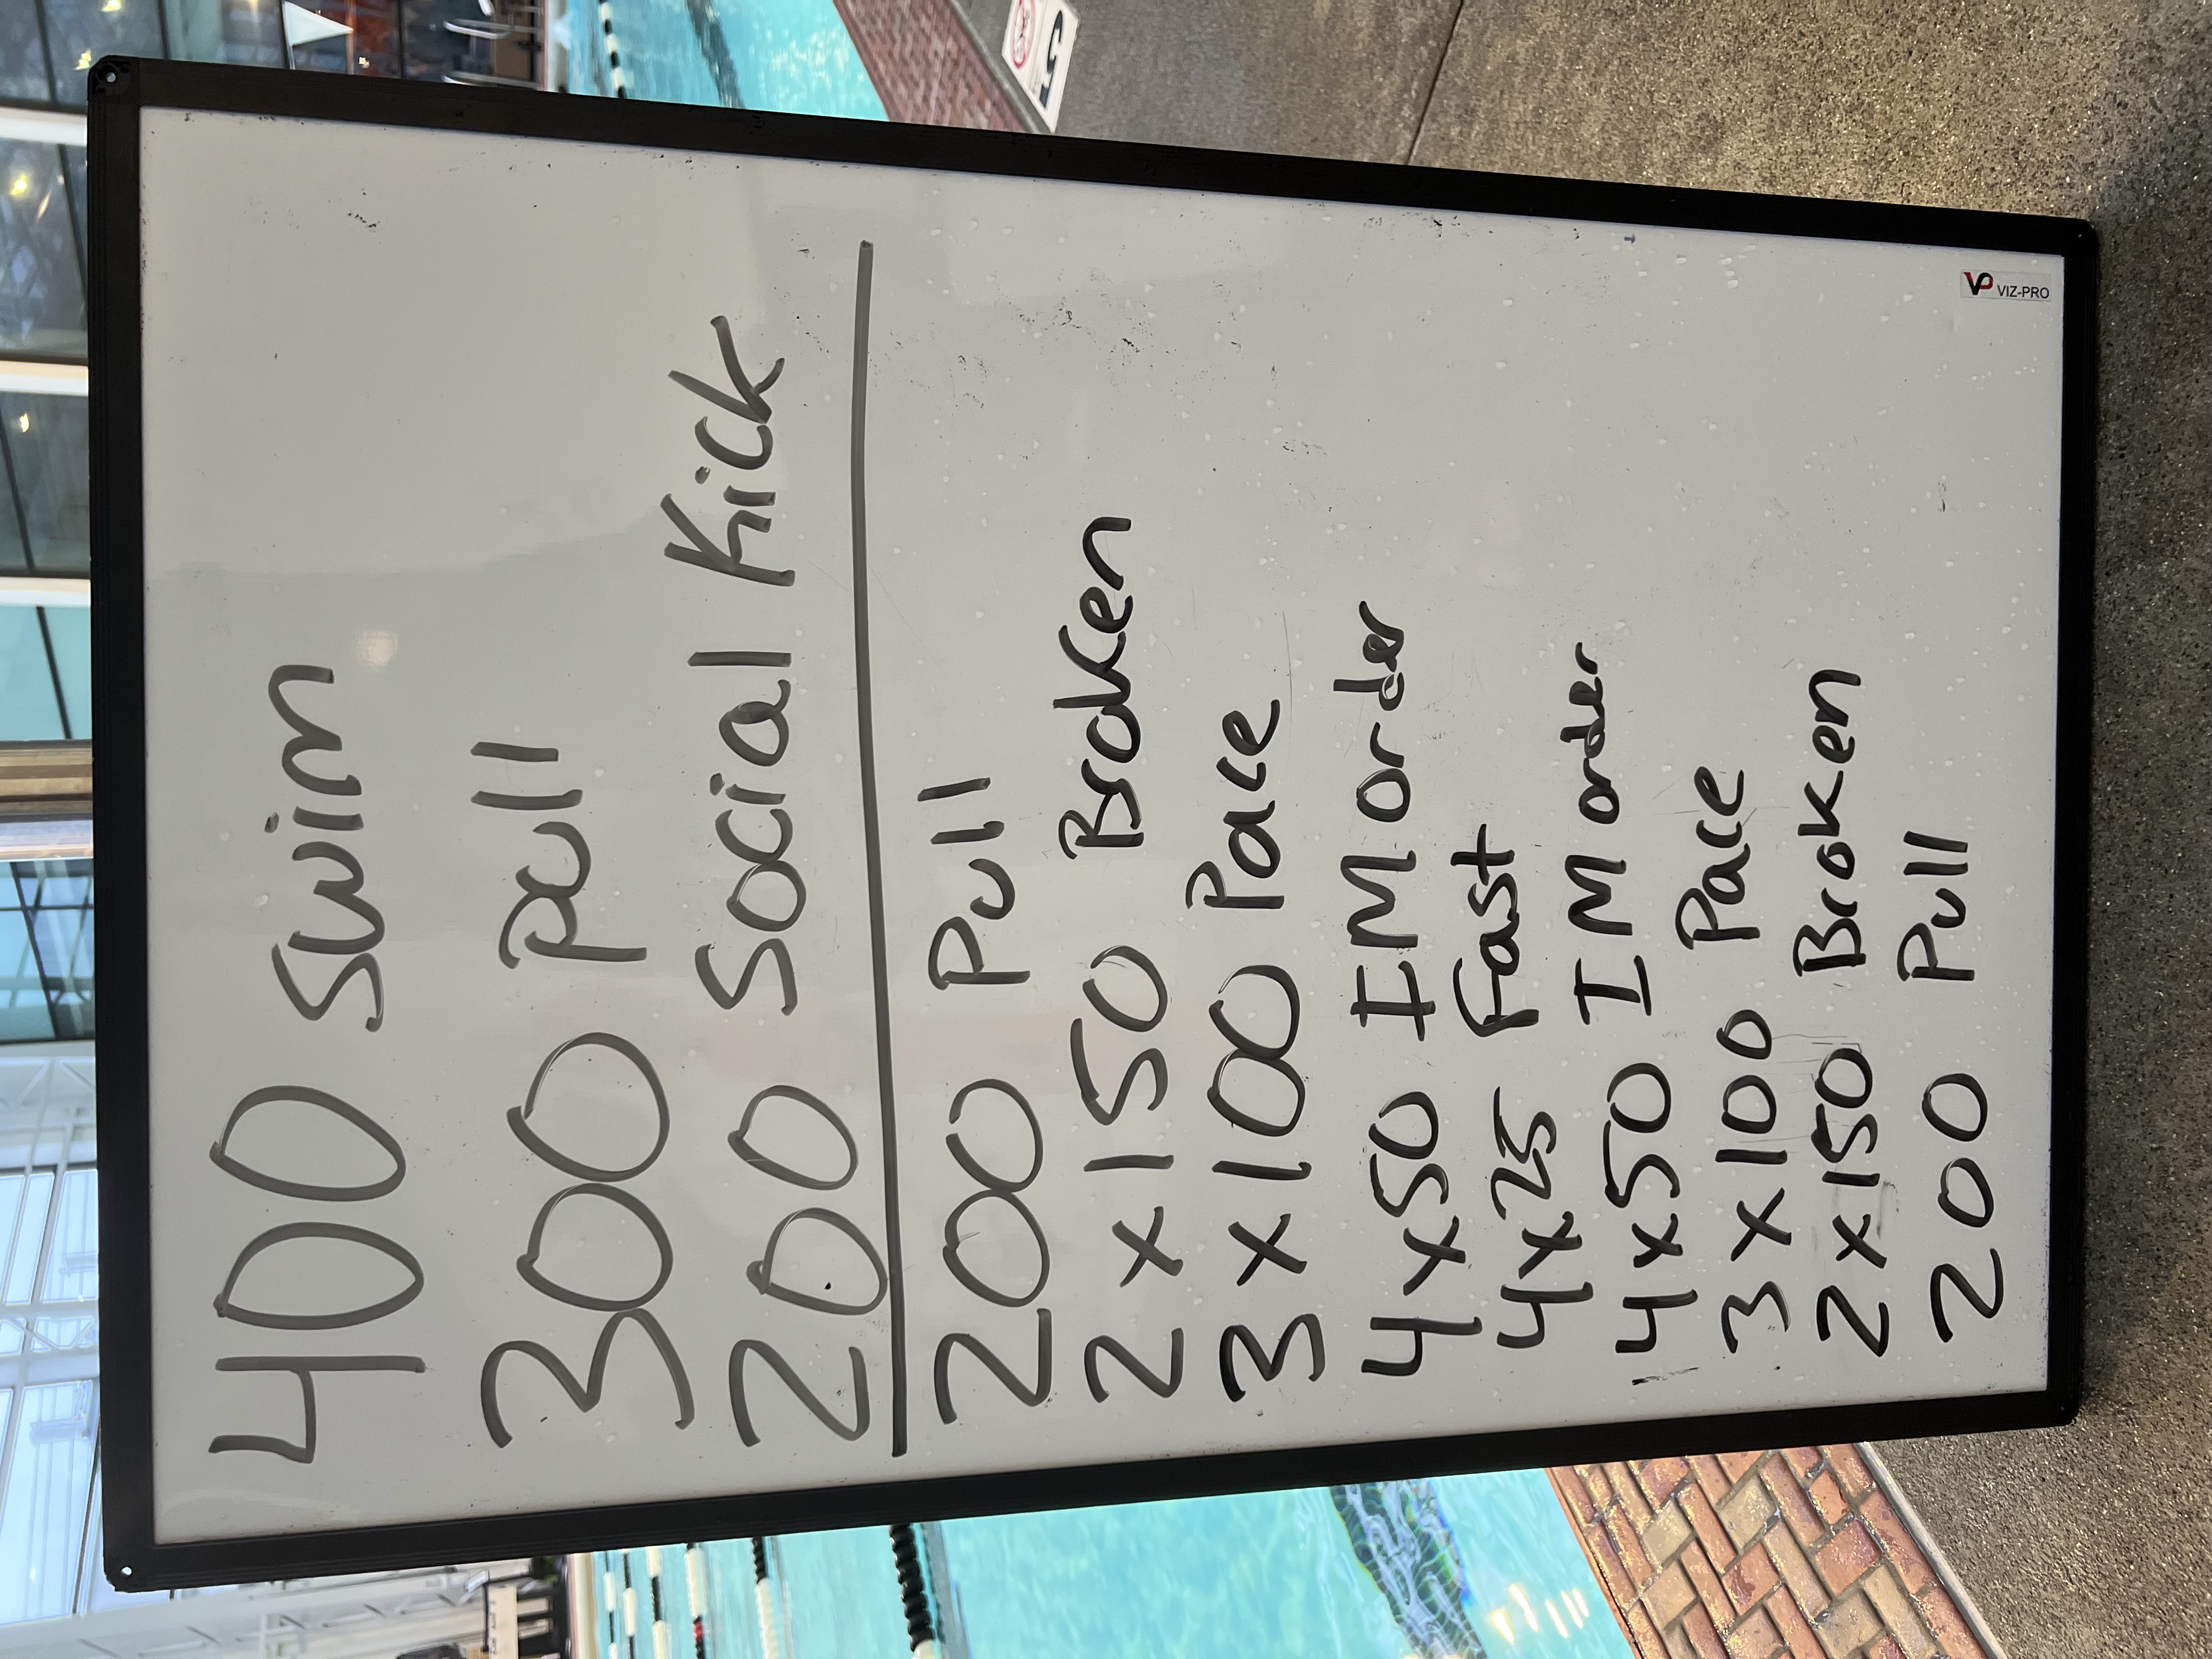 400 Swim
300 pull
200 Social Kick
200 Pull
2 x 150 Broken
3 x 100 Pace
4 x 50 IM order
4x25 Fast
4 x 50 IM order
3 x 100 Pace
2 x 150 Broken
200 Pull
VP VIZ-PRO